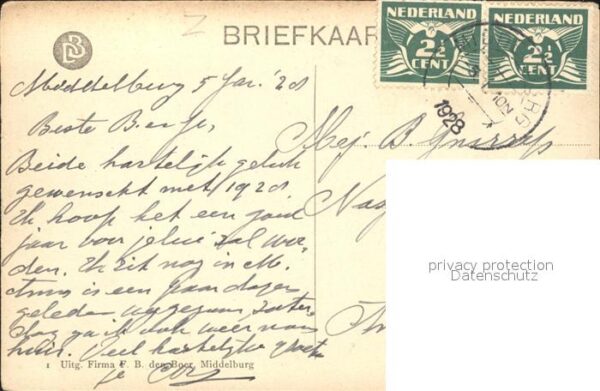 BRIEFKAAR
NEDERLAND
2½
CENT
NEDERLAND
2½
CENT
1928
DB
Middelburg 5 Jan. '28
Beste
Beide hartelijk geluk
gewenscht met 1928
Ik hoop het een goed
jaar voor jelui zal wor
den. Ik zit nog in M.
is een paar dagen
geleden
ga ik ook weer naar
huis. Veel hartelijke
je
Mej. B.
privacy protection
Datenschutz
1 Uitg. Firma F. B. den Boer, Middelburg